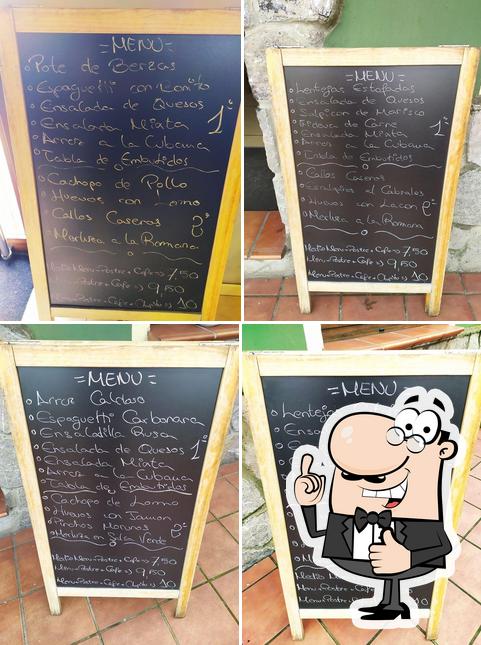 =MENU=
Pote de Berzas
Espaguetti con
Ensalada de Quesos
Ensalada Mixta
Arroz a la Cubana
Tabla de Embutidos
1º
Cachopo de Pollo
Huevos con Lomo
Callos Caseros
Merluza a la Romana
2º
Medio Menu+Postre+Cafe=> 7,50
Menu+Postre+Cafe=> 9,50
Menu+Postre+Cafe+Chupito=> 10
=MENU=
Lentejas Estofadas
Ensalada de Quesos
Salpicon de Marisco
de Carne
Ensalada Mixta
Arroz a la Cubana
Tabla de Embutidos
1º
Callos Caseros
Escalopines al Cabrales
Huevos con Lacon
Merluza a la Romana
2º
Medio Menu+Postre+Cafe=> 7,50
Menu+Postre+Cafe=> 9,50
Menu+Postre+Cafe+Chupito=> 10
=MENU=
Arroz Caldoso
Espaguetti Carbonara
Ensaladilla Rusa
Ensalada de Quesos
Ensalada Mixta
Arroz a la Cubana
Tabla de Embutidos
1º
Cachopo de Lomo
Huevos con Jamon
Pinchos Morunos
Merluza en Salsa Verde
2º
Medio Menu+Postre+Cafe=> 7,50
Menu+Postre+Cafe=> 9,50
Menu+Postre+Cafe+Chupito=> 10
=MENU=
Lenteja